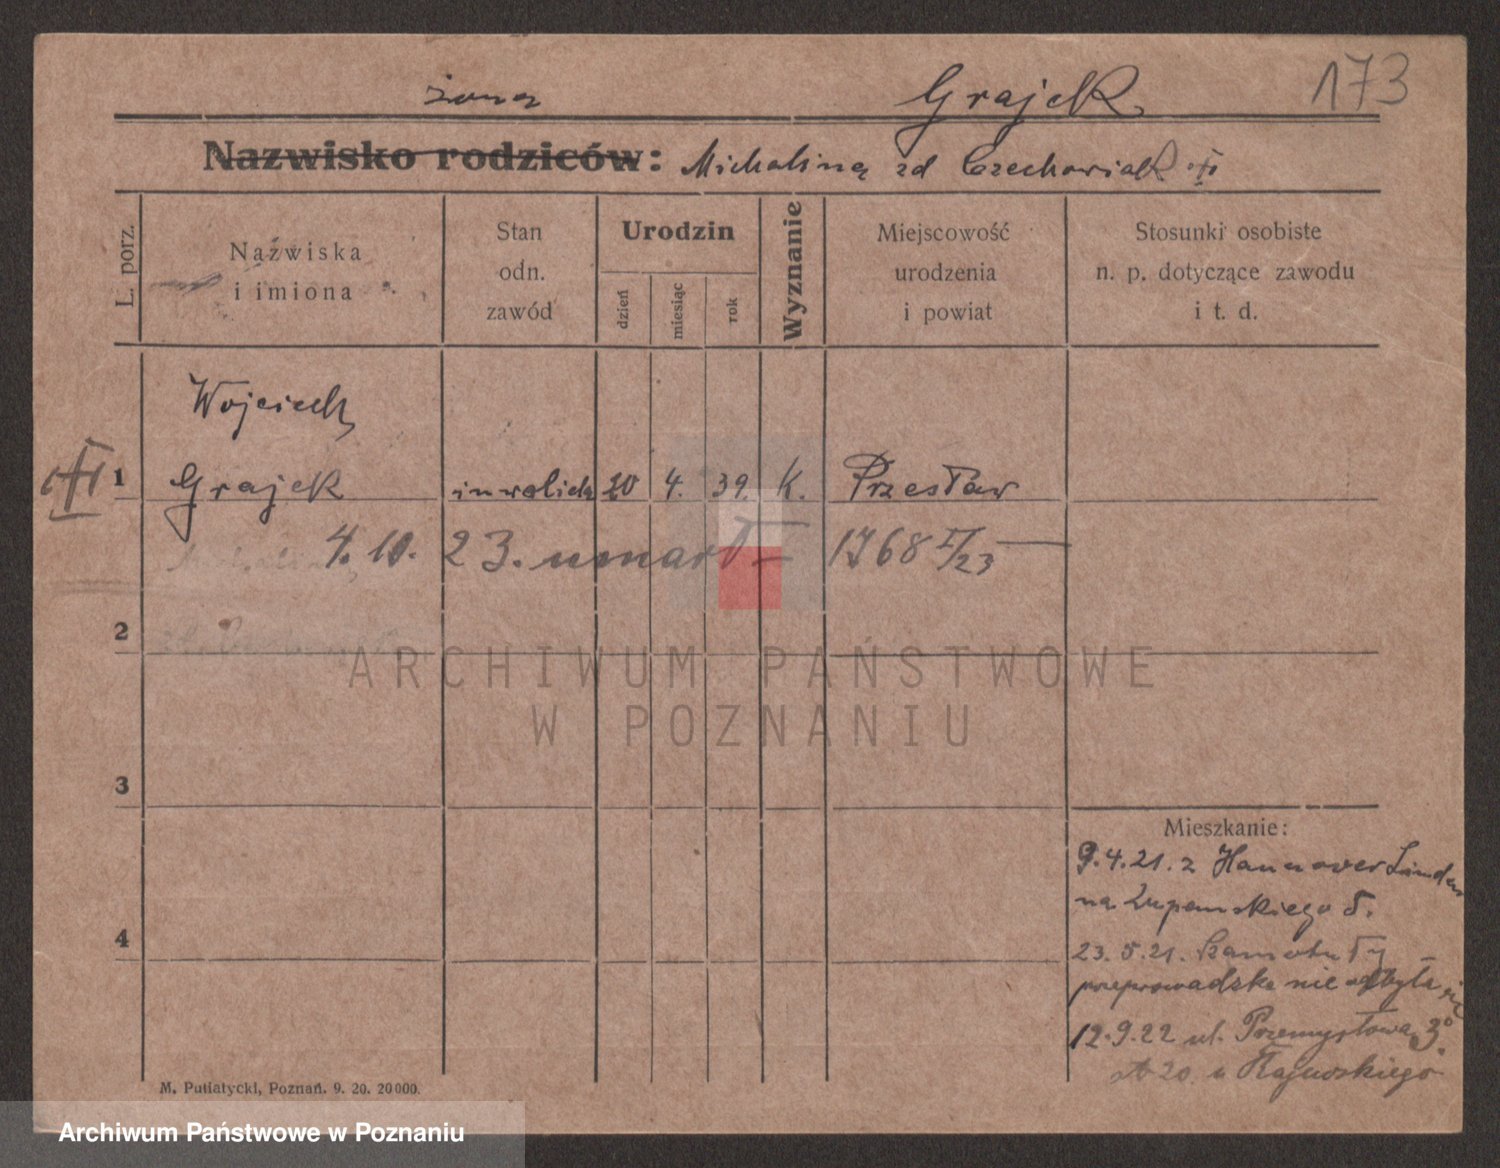 żona Grajek 173
Nazwisko rodziców: Michalina zd Czechowiak
L. porz.
Nazwiska
i imiona
Stan
odn.
zawód
Urodzin
dzień
miesiąc
rok
Wyznanie
Miejscowość
urodzenia
i powiat
Stosunki osobiste
n. p. dotyczące zawodu
i t. d.
Wojciech
1 Grajek inwalida 20 4. 39. K. Przesław
4. 10. 23. umarł 1768 I/23
2
3
4
Mieszkanie:
9.4.21. z Hannover Linden
na Żupańskiego 5.
23.5.21. Szamotuły
przeprowadzka nie odbyła się
12.9.22 ul. Przemysłowa 30
20. u
M. Putiatycki, Poznań. 9. 20. 20000.
ARCHIWUM PAŃSTWOWE
W POZNANIU
Archiwum Państwowe w Poznaniu